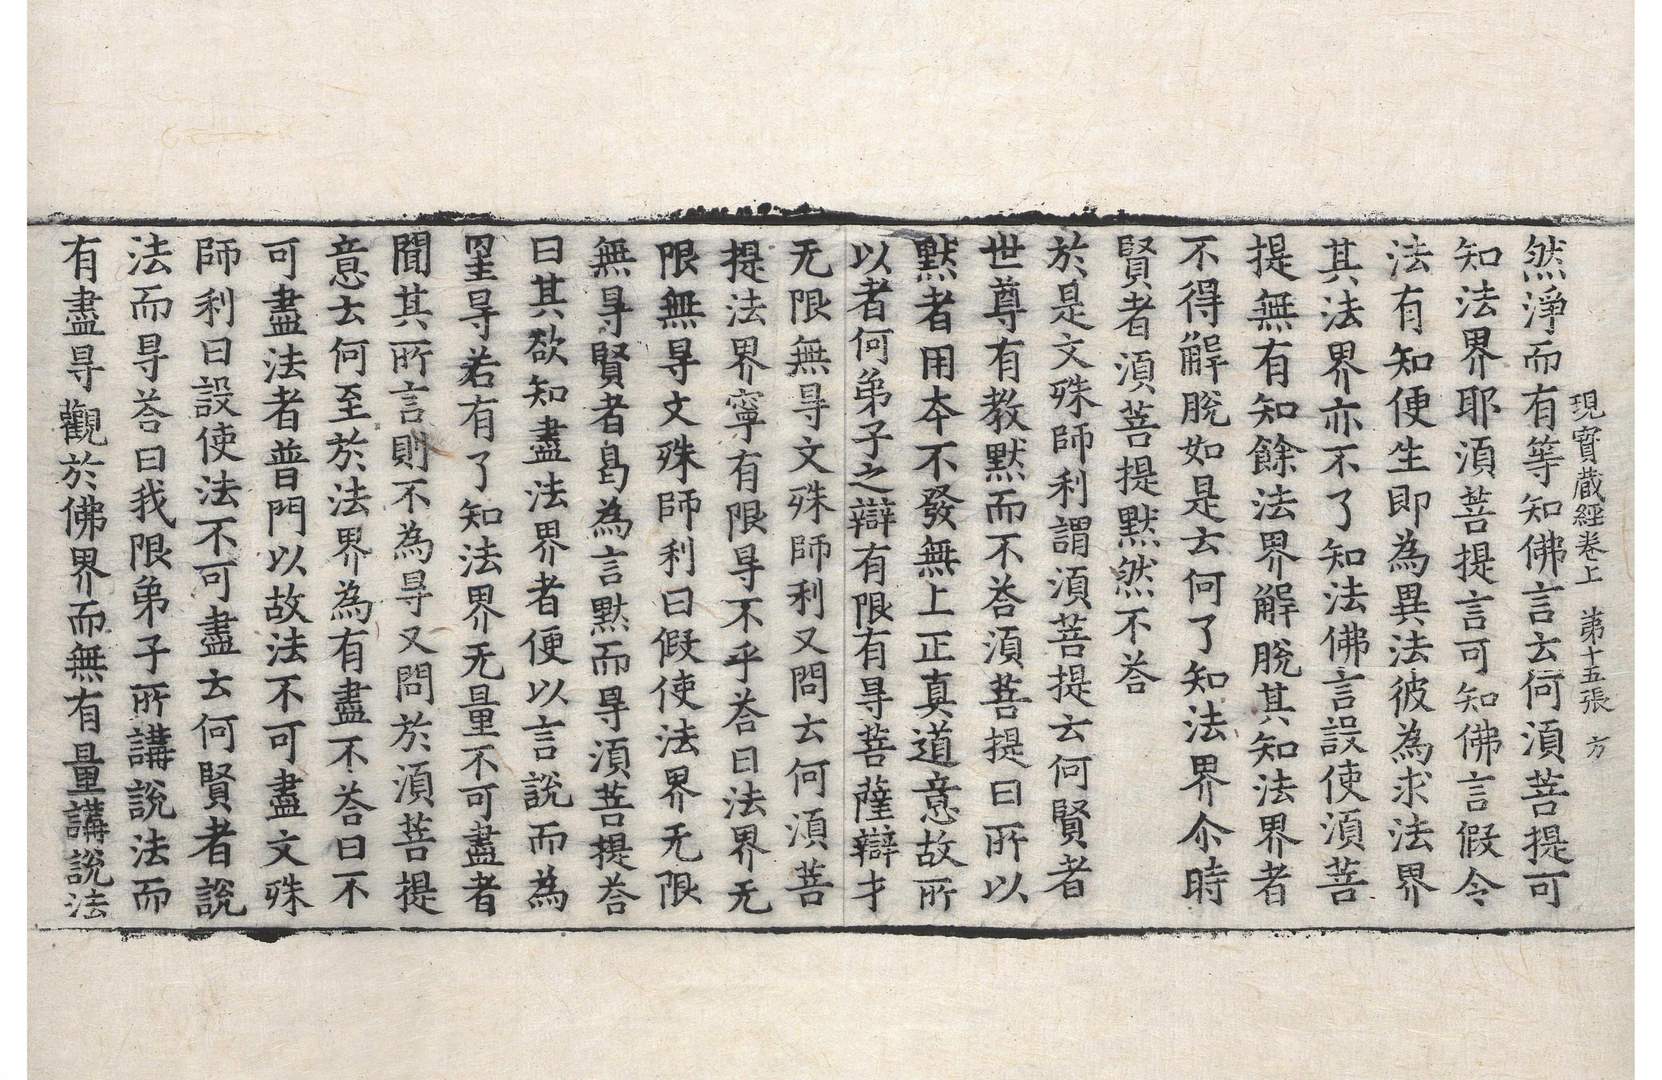 現寳蔵經卷上 第十五張 方
然淨而有等知佛言云何湏菩提可
知法界耶湏菩提言可知佛言假令
法有知便生即為異法彼為求法界
其法界亦不了知法佛言設使湏菩
提無有知餘法界解脫其知法界者
不得解脫如是云何了知法界尒時
賢者湏菩提默然不荅
於是文殊師利謂湏菩提云何賢者
世尊有教默而不荅湏菩提曰所以
默者用本不發無上正真道意故所
以者何弟子之辯有限有㝵菩薩辯才
无限無㝵文殊師利又問云何湏菩
提法界寧有限㝵不乎荅曰法界无
限無㝵文殊師利曰假使法界无限
無㝵賢者曷為言默而㝵湏菩提荅
曰其欲知盡法界者便以言說而為
罣㝵若有了知法界无量不可盡者
聞其所言則不為㝵又問於湏菩提
意云何至於法界為有盡不荅曰不
可盡法者普門以故法不可盡文殊
師利曰設使法不可盡云何賢者說
法而㝵荅曰我限弟子所講說法而
有盡㝵觀於佛界而無有量講說法